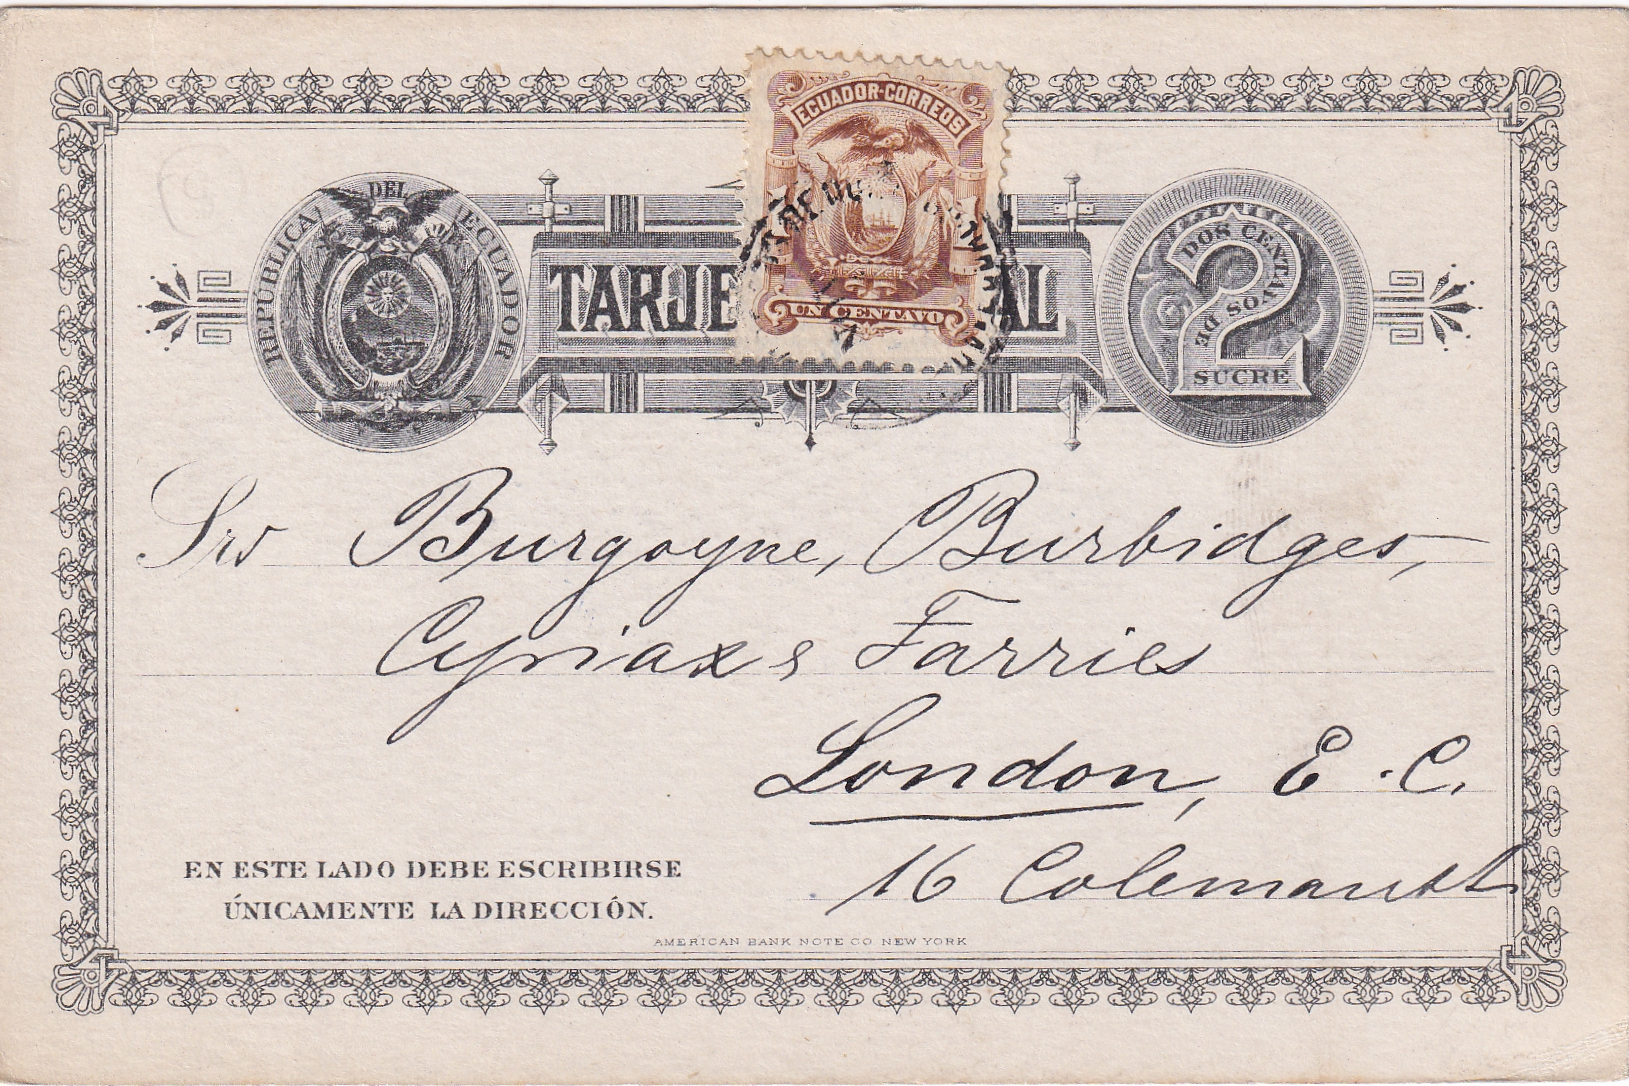 ECUADOR-CORREOS
UN CENTAVO
REPÚBLICA DEL ECUADOR
TARJE AL
DOS CENTAVOS DE
2
SUCRE
Srs Burgoyne, Burbidges,
Cyriax & Farries
London, E. C.
16 Coleman St
EN ESTE LADO DEBE ESCRIBIRSE
ÚNICAMENTE LA DIRECCIÓN.
AMERICAN BANK NOTE CO NEW YORK